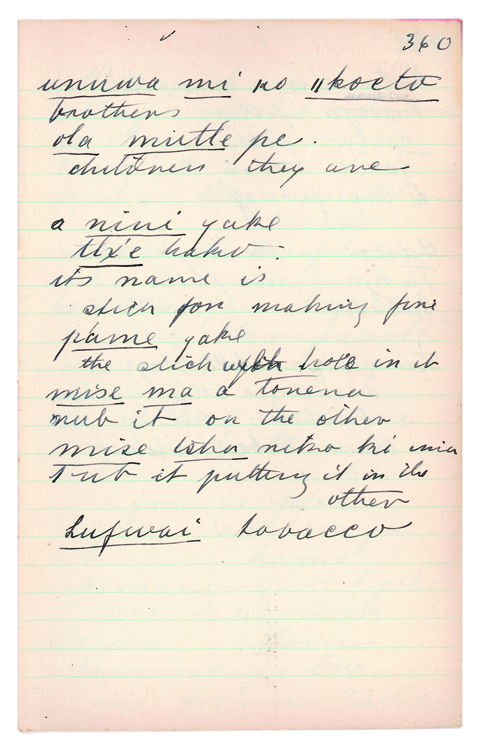 360
unuwa mi ko ǁkoeto
brothers
ola mutle pe.
childrens they are
a nini yake
tlx'e hako.
its name is
stick for making fire
pame yake
the stick with hole in it
mise ma a tonena
rub it on the other
mise isha niko ki
rub it putting it in the
other
Lufwai tobacco